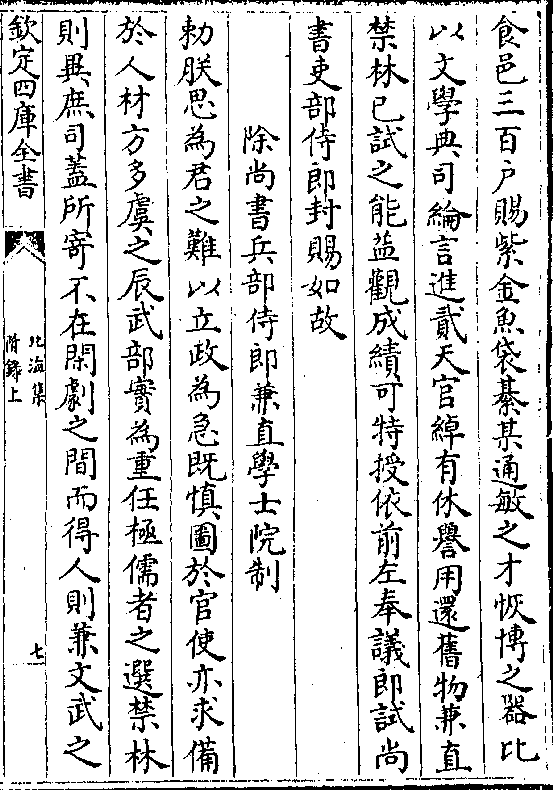 食邑三百户賜紫金魚袋綦某通敏之才恢博之器比
以文學典司綸言進貳天官綽有休譽用還舊物兼直
禁林已試之能益觀成績可特授依前左奉議郎試尚
書吏部侍郎封賜如故
除尚書兵部侍郎兼直學士院制
勅朕思為君之難以立政為急既慎圖於官使亦求備
於人材方多虞之辰武部實為重任極儒者之選禁林
則異庶司蓋所寄不在閑劇之間而得人則兼文武之
欽定四庫全書
北海集
附錄上
七